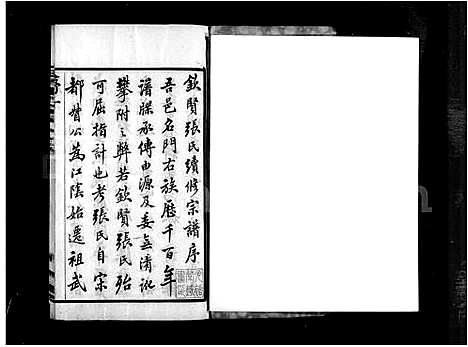 欽賢張氏續修宗譜序
吾邑名門右族歷千百年
譜牒承傳由源及委無淆訛
攀附之弊若欽賢張氏殆
可屈指計也考張氏自宋
都曹公為江陰始遷祖武